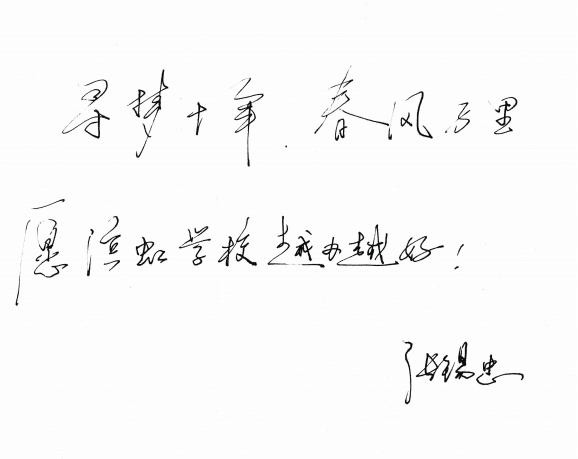 寻梦十年.春风万里
愿滨虹学校越办越好!
张锡忠